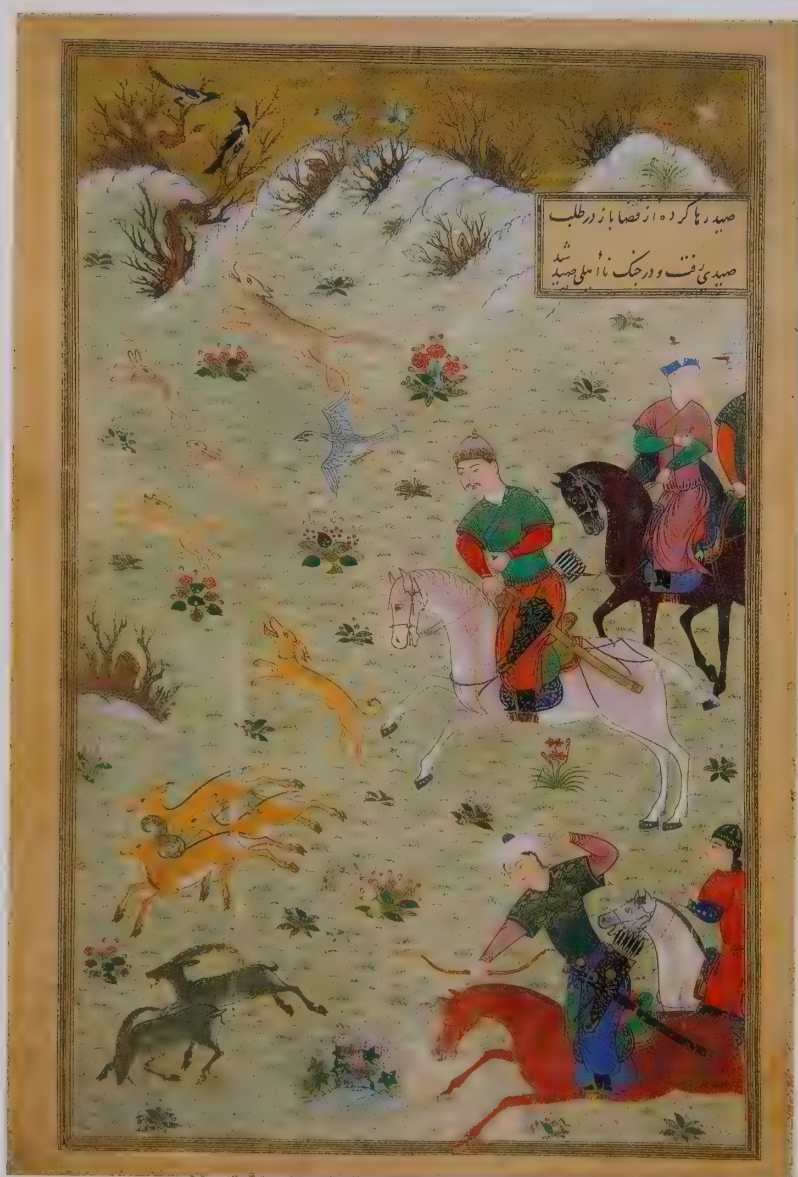 صید رها کرده از قضا باز در طلب
صیدی رفت و در جنگ نااهلی صید شد